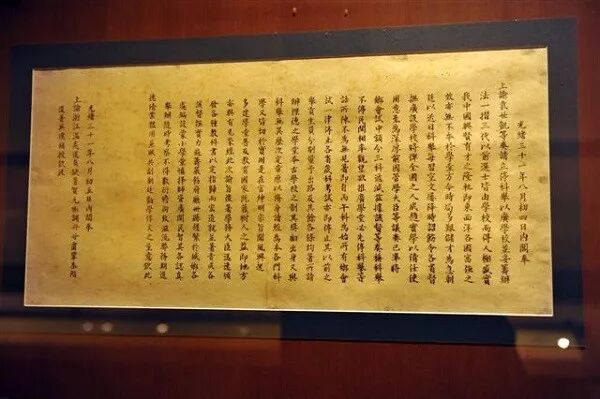 光緒三十一年八月初四日內閣奉
上諭袁世凱等奏請立停科舉以廣學校並妥籌辦
法一摺三代以前選士皆由學校而得人極盛實
我中國興賢育才之隆軌即東西洋各國富強之
效亦無不本於學堂方今時局多艱儲才為急朝
廷以近日科舉每習空文屢降明詔飭令各省督
撫廣設學校將俾全國之人咸趨實學以備任使
用意至為深厚前因管學大臣等議奏已准將
鄉會試中額分三科遞減茲據該督等奏稱科舉
不停民間相率觀望欲推廣學堂必先停科舉等
語所陳不為無見著即自丙午科為始所有鄉會
試一律停止各省歲科考試亦即停止其以前之
舉貢生員分別量予出路及其餘各條均著照所請
辦理總之學堂本古學校之制其獎勵出身又與
科舉無異歷次定章原以修身讀經為本各門科
學又皆切於實用是在官紳申明宗旨聞風興起
多建學堂普及教育國家既獲樹人之益即地方
亦與有光榮經此次諭旨後著學務大臣迅速頒
發各種教科書以定指歸而宏造就並著責成各
該督撫實力通籌嚴飭府廳州縣趕緊於城鄉各
處遍設蒙小學堂慎擇師資廣開民智其各認真
舉辦隨時考察不得敷衍瞻徇致滋流弊務期進
德修業體用兼賅共副朝廷勸學作人之至意欽此
光緒三十一年八月初五日內閣奉
上諭浙江溫處道員缺著賀元彬調
補授欽此